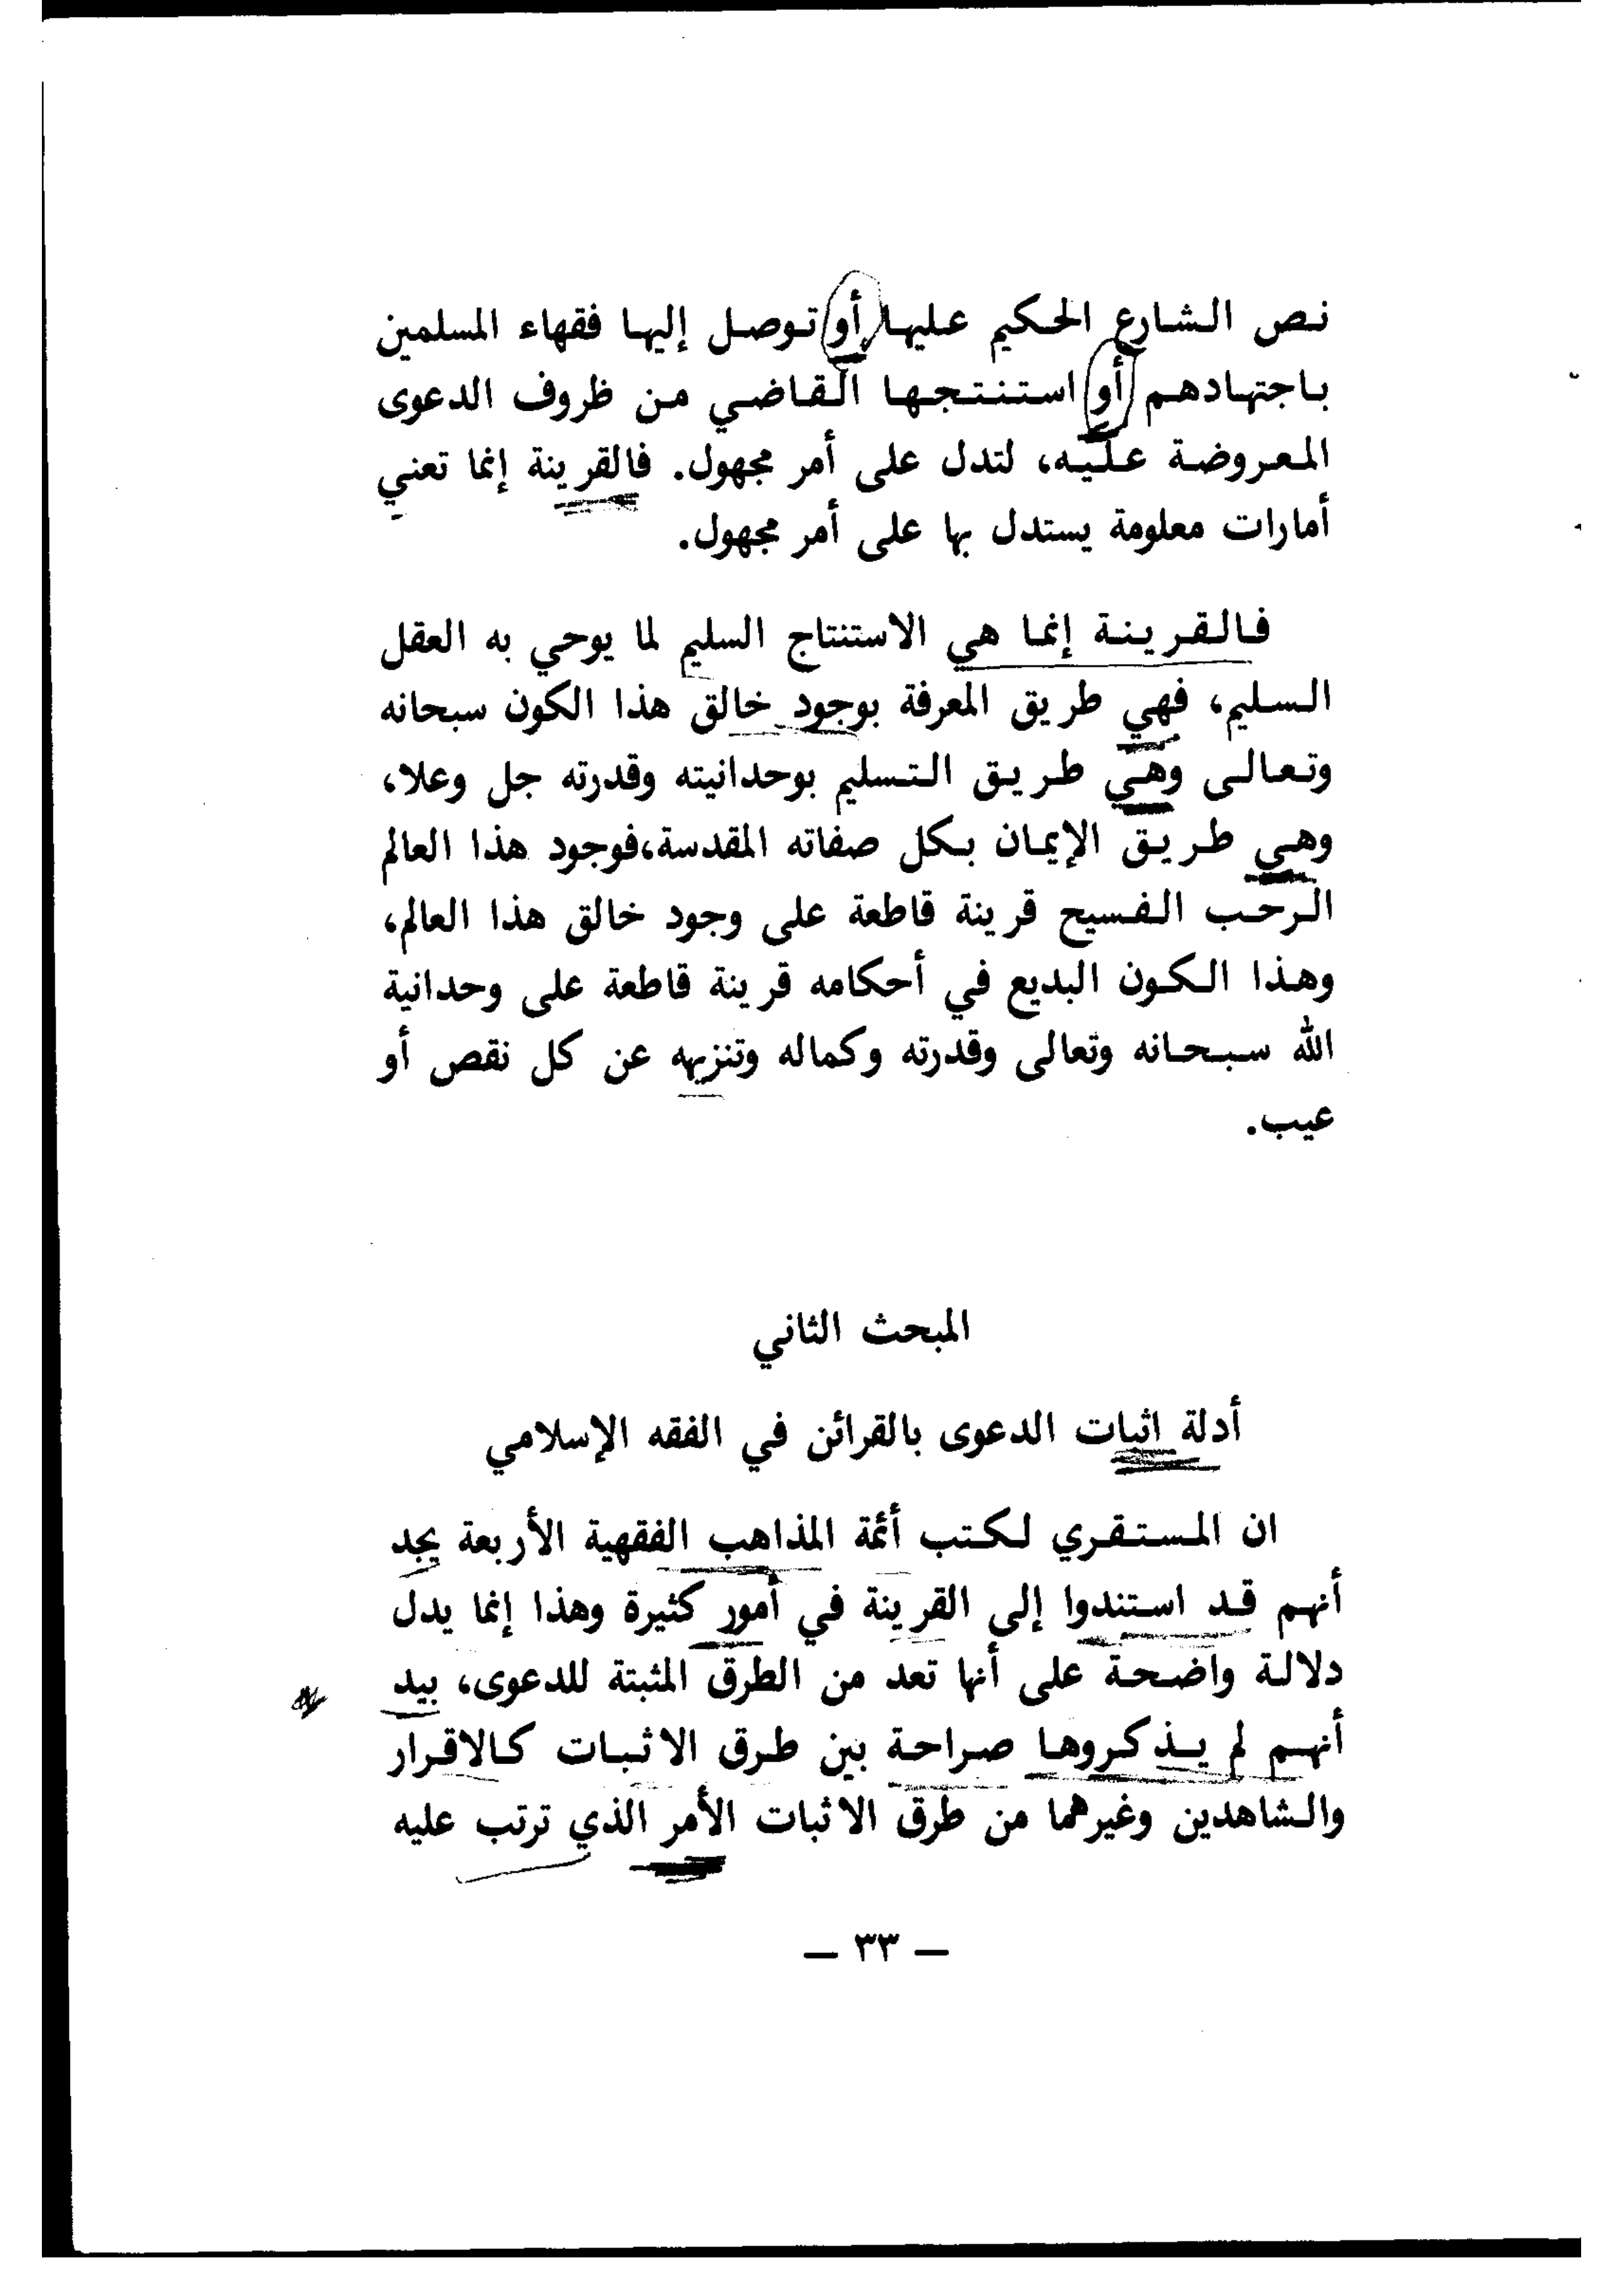 نص الشارع الحكيم عليها أو توصل إليها فقهاء المسلمين
باجتهادهم أو استنتجها القاضي من ظروف الدعوى
المعروضة عليه، لتدل على أمر مجهول. فالقرينة إنما تعني
أمارات معلومة يستدل بها على أمر مجهول.
فالقرينة إنما هي الاستنتاج السليم لما يوحي به العقل
السليم، فهي طريق المعرفة بوجود خالق هذا الكون سبحانه
وتعالى وهي طريق التسليم بوحدانيته وقدرته جل وعلا،
وهي طريق الإيمان بكل صفاته المقدسة،فوجود هذا العالم
الرحب الفسيح قرينة قاطعة على وجود خالق هذا العالم،
وهذا الكون البديع في أحكامه قرينة قاطعة على وحدانية
الله سبحانه وتعالى وقدرته وكماله وتنزيهه عن كل نقص أو
عيب.
المبحث الثاني
أدلة اثبات الدعوى بالقرائن في الفقه الإسلامي
ان المستقري لكتب أئمة المذاهب الفقهية الأربعة يجد
أنهم قد استندوا إلى القرينة في أمور كثيرة وهذا إنما يدل
دلالة واضحة على أنها تعد من الطرق المثبتة للدعوى، بيد
أنهم لم يذكروها صراحة بين طرق الاثبات كالاقرار
والشاهدين وغيرهما من طرق الاثبات الأمر الذي ترتب عليه
— ٣٣ —